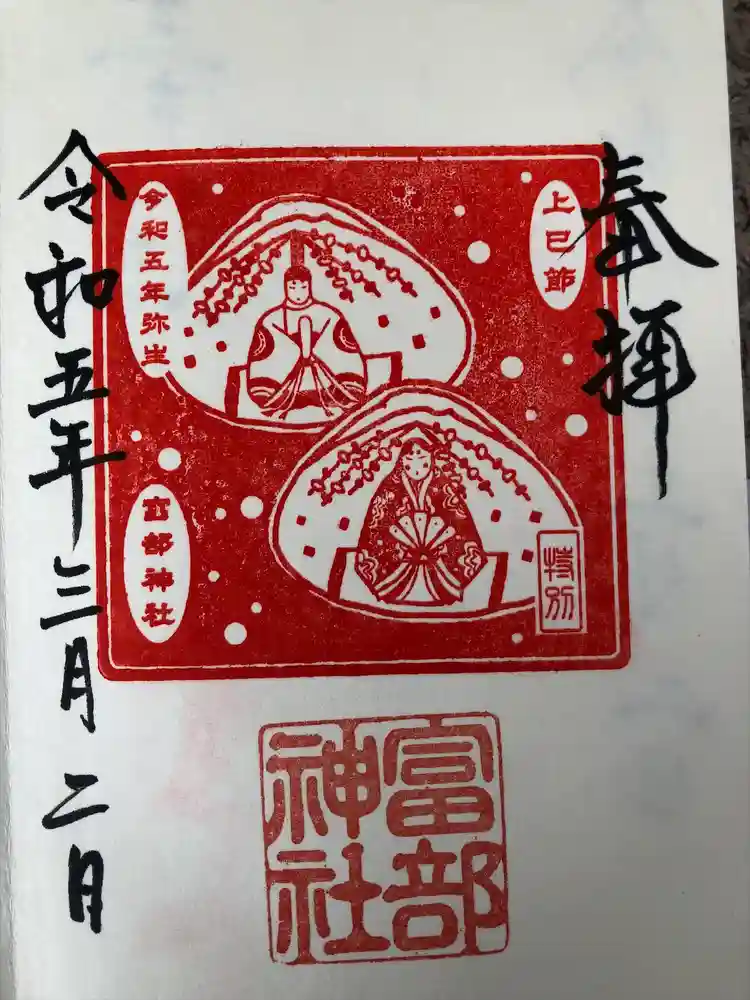 奉拝
上巳節
特別
令和五年弥生
富部神社
令和五年三月二日
富部
神社